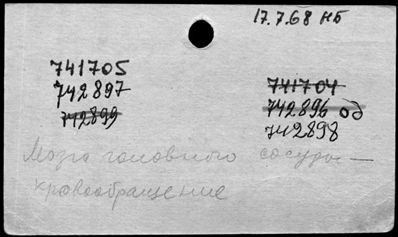 17.7.68 НБ
741705 741704
742897 742896 од
742899 742898
Мозга головного сосуды —
кровообращение